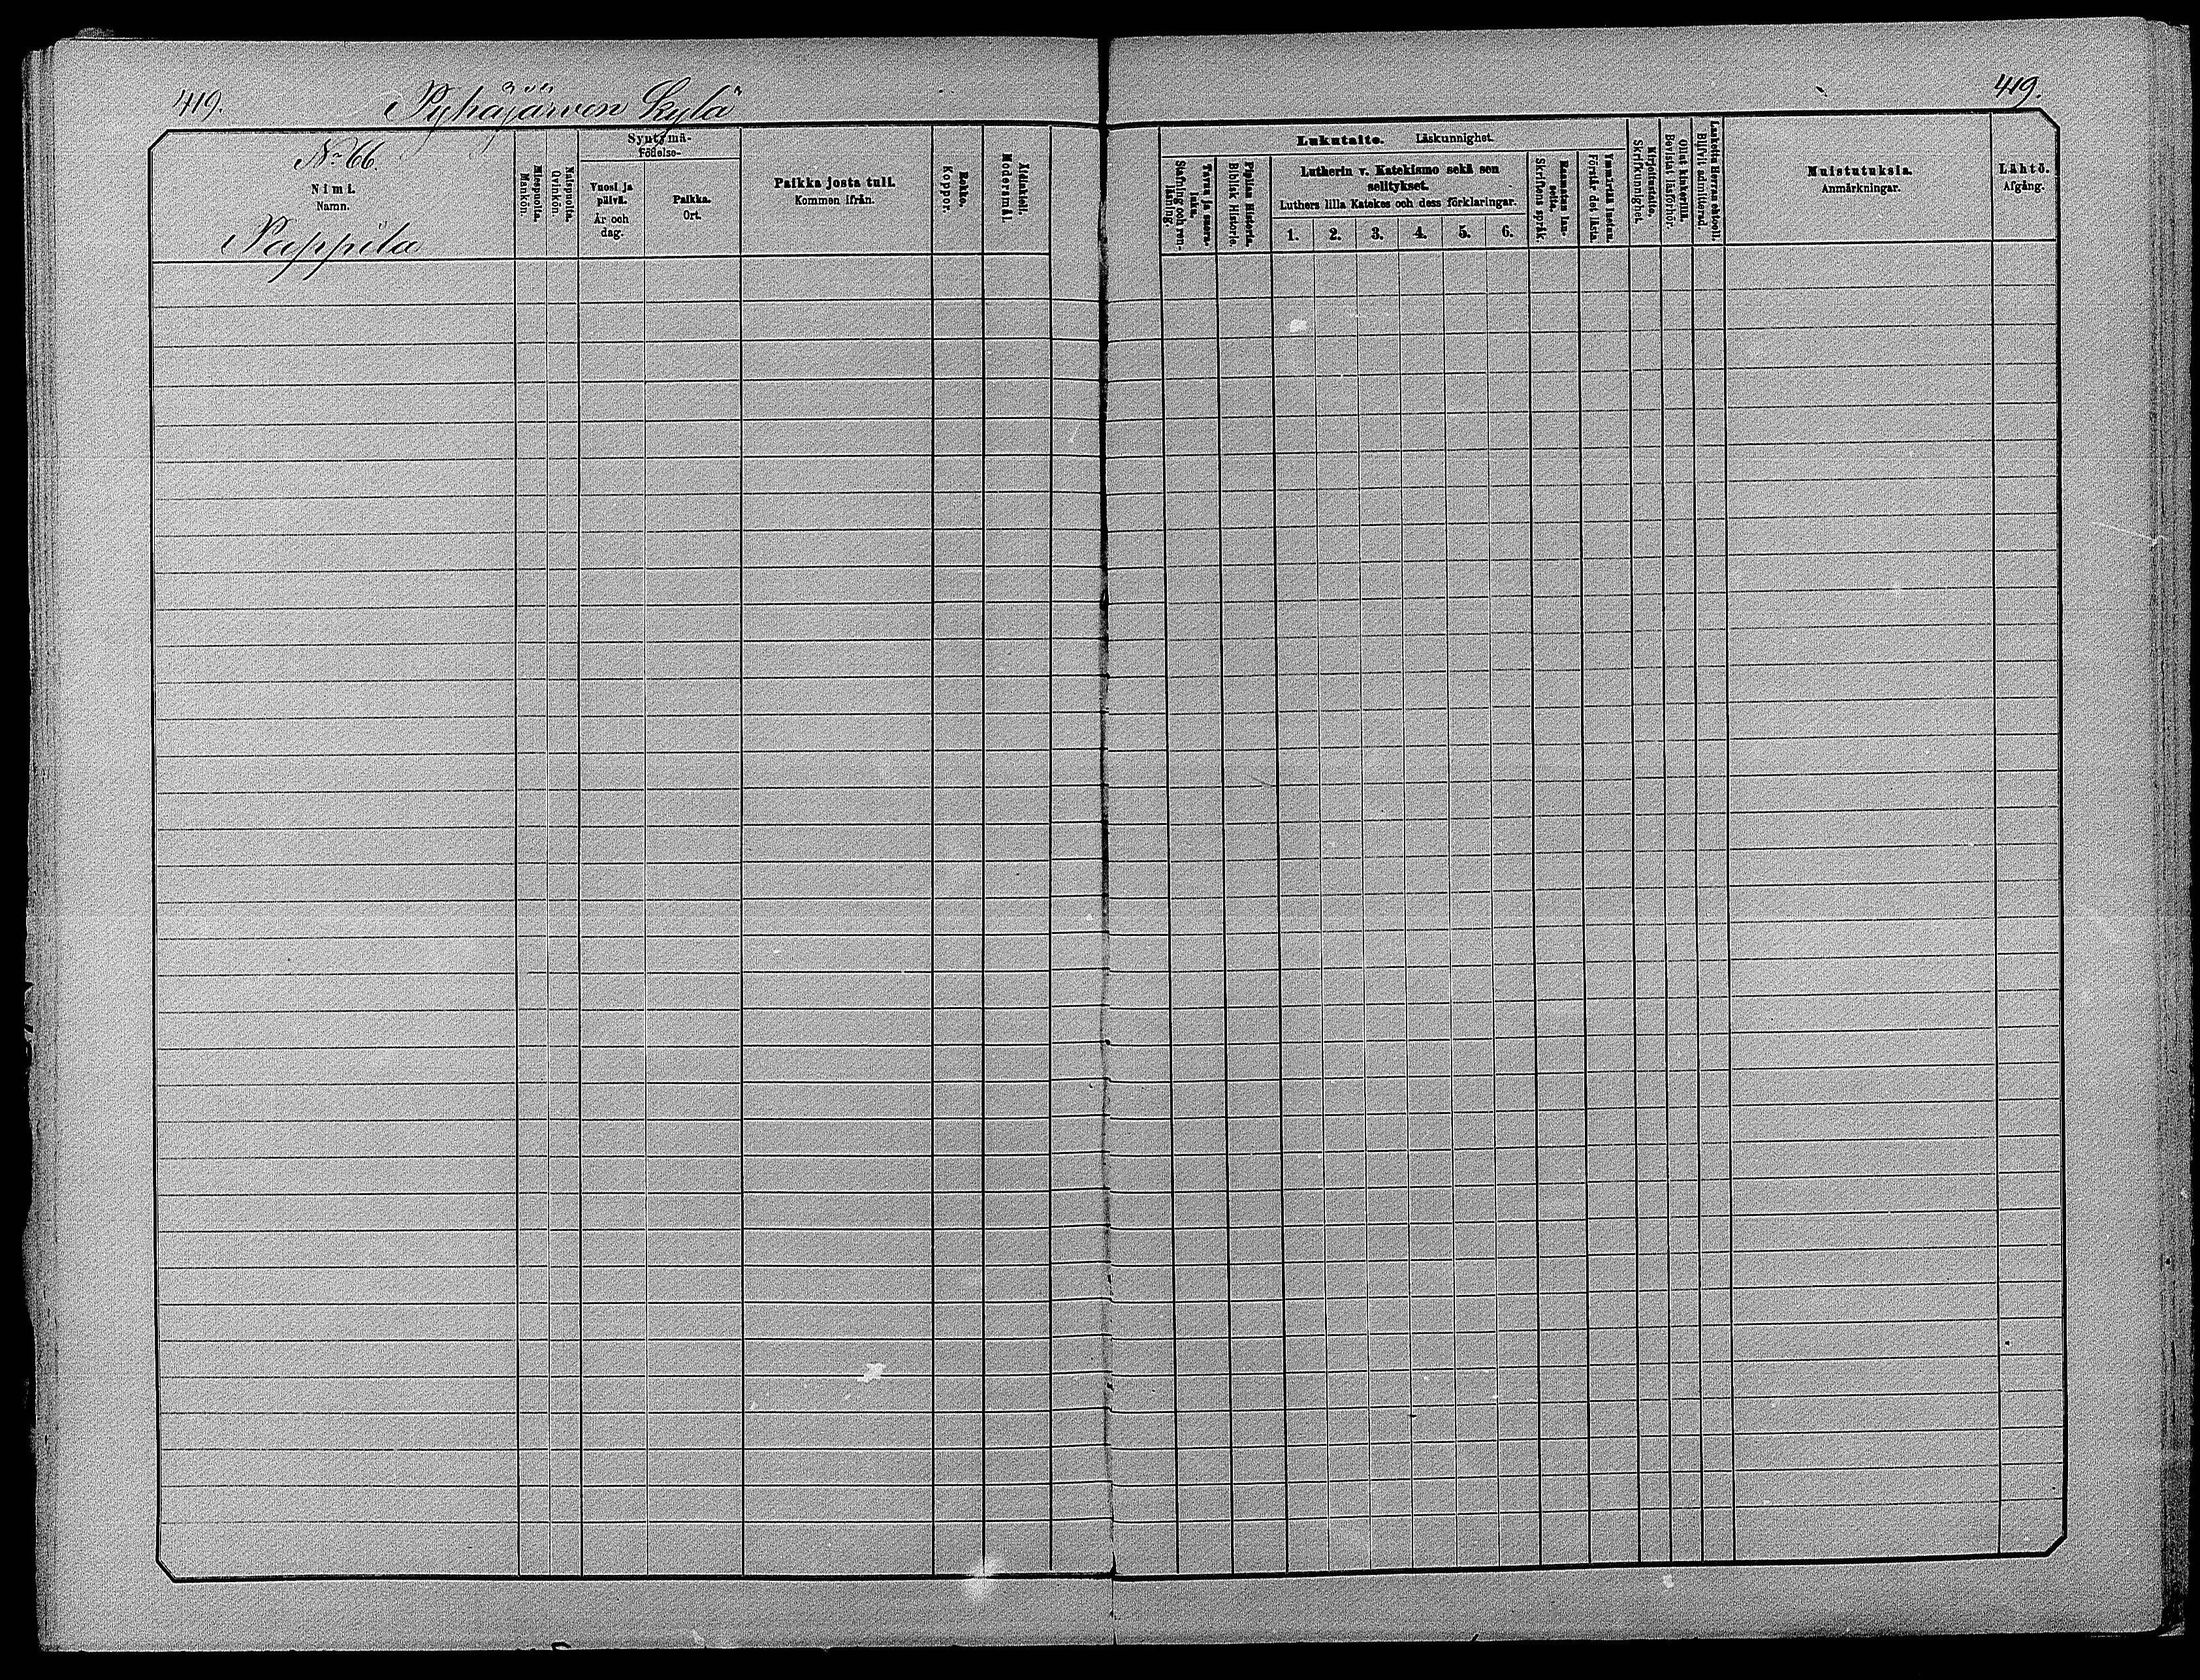 419.
Pyhäjärven Kylä
419.
No 66.
Nimi.
Namn.
Pappila
Miespuolia.
Mankön.
Naispuolia.
Qvinkön.
Syntymä-
Födelse-
Vuosi ja
päivä.
År och
dag.
Paikka.
Ort.
Paikka josta tuli.
Kommen ifrån.
Rokko.
Koppor.
Äidinkieli.
Modersmål.
Lukutaito. Läskunnighet.
Tavuu ja suora-
luku.
Stafning och ren-
läsning.
Piplian Historia.
Biblisk Historie.
Lutherin v. Katekismo sekä sen
selitykset.
Luthers lilla Katekes och dess förklaringar.
1. 2. 3. 4. 5. 6.
Raamatun lau-
seita.
Skriftens språk.
Ymmärtää luetun.
Förstår det lästa.
Kirjoitustaito.
Skrifkunnighet.
Ollut kinkerillä.
Bevistat läsförhör.
Laskettu Herran ehtooll.
Blifvit admitterad.
Muistutuksia.
Anmärkningar.
Lähtö.
Afgång.